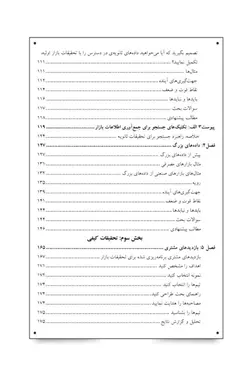 تصمیم بگیرید که آیا می‌خواهید داده‌های ثانویه‌ی در دسترس را با تحقیقات بازار تولید
تکمیل نمایید؟ ۱۱۱
مثال‌ها ۱۱۱
جهت‌گیری‌های آینده ۱۱۳
نقاط قوت و ضعف ۱۱۴
بایدها و نبایدها ۱۱۶
سوالات بحث ۱۱۷
مطالب پیشنهادی ۱۱۸
پیوست ۴ الف: تکنیک‌های جستجو برای جمع‌آوری اطلاعات بازار ۱۱۹
خلاصه: راهبرد جستجو برای تحقیقات ثانویه ۱۲۴
فصل ۴: داده‌های بزرگ ۱۲۷
بیش از داده‌های بزرگ ۱۲۷
مثال بازارهای مصرفی ۱۳۱
مثال‌های بازارهای صنعتی از داده‌های بزرگ ۱۳۹
رویه ۱۳۵
جهت‌گیری‌های آینده ۱۳۹
نقاط قوت و ضعف ۱۴۱
بایدها و نبایدها ۱۴۲
سوالات بحث ۱۴۴
مطالب پیشنهادی ۱۴۶
بخش سوم: تحقیقات کیفی
فصل ۵: بازدیدهای مشتری ۱۶۵
بازدیدهای مشتری برنامه‌ریزی شده برای تحقیقات بازار ۱۶۷
اهداف را مشخص کنید ۱۷۱
نمونه انتخاب کنید ۱۷۲
تیم‌ها را انتخاب کنید ۱۷۳
راهنمای بحث طراحی کنید ۱۷۴
مصاحبه‌ها را هدایت نمایید ۱۷۴
تیم‌ها را بشناسید ۱۷۵
تحلیل و گزارش نتایج ۱۷۵